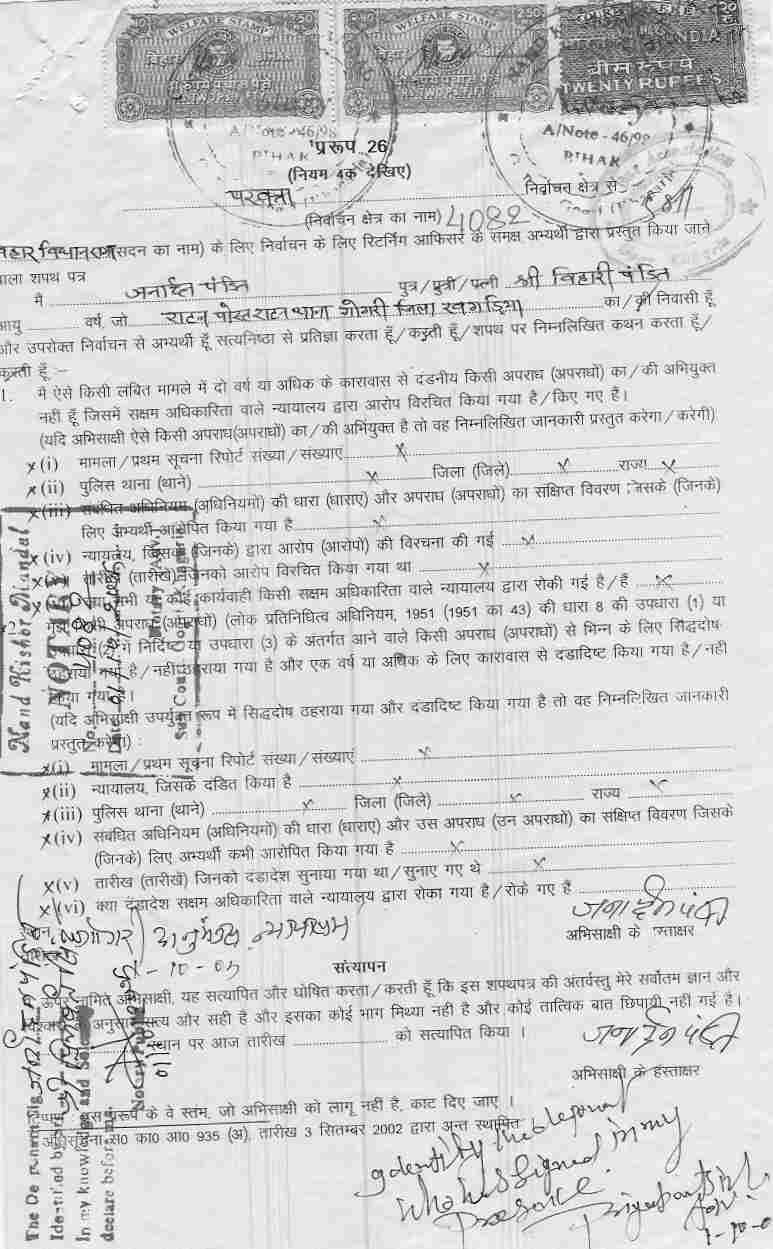 WELFARE STAMP
WELFARE STAMP
बिहार
BIHAR
बीस रूपये
INDIA
TWENTY RUPEES
A/Note - 46/98
BIHAR
A/Note - 46/98
BIHAR
प्ररूप 26
(नियम 4क देखिए)
परबत्ता निर्वाचन क्षेत्र से
(निर्वाचन क्षेत्र का नाम) 4082
बिहार विधान सभा (सदन का नाम) के लिए निर्वाचन के लिए रिटर्निंग आफिसर के समक्ष अभ्यर्थी द्वारा प्रस्तुत किया जाने
वाला शपथ पत्र
मैं जनार्दन पंडित पुत्र/पुत्री/पत्नी श्री बिहारी पंडित
आयु वर्ष, जो राटन पोस्ट राटन थाना गोगरी जिला खगड़िया का/की निवासी हूँ
और उपरोक्त निर्वाचन से अभ्यर्थी हूँ सत्यनिष्ठा से प्रतिज्ञा करता हूँ/करती हूँ/शपथ पर निम्नलिखित कथन करता हूँ/
करती हूँ :-
1. मैं ऐसे किसी लंबित मामले में दो वर्ष या अधिक के कारावास से दंडनीय किसी अपराध (अपराधों) का/की अभियुक्त
नहीं हूँ जिसमें सक्षम अधिकारिता वाले न्यायालय द्वारा आरोप विरचित किया गया है/किए गए हैं।
(यदि अभिसाक्षी ऐसे किसी अपराध(अपराधों) का/की अभियुक्त है तो वह निम्नलिखित जानकारी प्रस्तुत करेगा/करेगी)
x (i) मामला/प्रथम सूचना रिपोर्ट संख्या/संख्याएं x
x (ii) पुलिस थाना (थाने) x जिला (जिले) x राज्य x
x (iii) संबंधित अधिनियम (अधिनियमों) की धारा (धाराएं) और अपराध (अपराधों) का संक्षिप्त विवरण जिसके (जिनके)
लिए अभ्यर्थी आरोपित किया गया है x
x (iv) न्यायालय, जिसके (जिनके) द्वारा आरोप (आरोपों) की विरचना की गई x
तारीख (तारीखें) जिनको आरोप विरचित किया गया था x
सभी या कोई कार्यवाही किसी सक्षम अधिकारिता वाले न्यायालय द्वारा रोकी गई है/हैं x
अपराध (अपराधों) (लोक प्रतिनिधित्व अधिनियम, 1951 (1951 का 43) की धारा 8 की उपधारा (1) या
निर्दिष्ट या उपधारा (3) के अंतर्गत आने वाले किसी अपराध (अपराधों) से भिन्न के लिए सिद्धदोष
ठहराया गया है/नहीं ठहराया गया है और एक वर्ष या अधिक के लिए कारावास से दंडादिष्ट किया गया है/नहीं
किया गया है।
(यदि अभिसाक्षी उपर्युक्त रूप में सिद्धदोष ठहराया गया और दंडादिष्ट किया गया है तो वह निम्नलिखित जानकारी
प्रस्तुत करेगा) :
x (i) मामला/प्रथम सूचना रिपोर्ट संख्या/संख्याएं x
x (ii) न्यायालय, जिसके दंडित किया है x
x (iii) पुलिस थाना (थाने) x जिला (जिले) x राज्य x
x (iv) संबंधित अधिनियम (अधिनियमों) की धारा (धाराएं) और उस अपराध (उन अपराधों) का संक्षिप्त विवरण जिसके
(जिनके) लिए अभ्यर्थी कभी आरोपित किया गया है x
x (v) तारीख (तारीखें) जिनको दंडादेश सुनाया गया था/सुनाए गए थे x
x (vi) क्या दंडादेश सक्षम अधिकारिता वाले न्यायालय द्वारा रोका गया है/रोके गए हैं
जनार्दन पंडित
अभिसाक्षी के हस्ताक्षर
सत्यापन
अभिसाक्षी, यह सत्यापित और घोषित करता/करती हूँ कि इस शपथपत्र की अंतर्वस्तु मेरे सर्वोतम ज्ञान और
अनुसार सत्य और सही है और इसका कोई भाग मिथ्या नहीं है और कोई तात्विक बात छिपायी नहीं गई है।
स्थान पर आज तारीख को सत्यापित किया।
जनार्दन पंडित
अभिसाक्षी के हस्ताक्षर
रूप के वे स्तंभ, जो अभिसाक्षी को लागू नहीं है, काट दिए जाए।
सं0 का0 आ0 935 (अ), तारीख 3 सितम्बर 2002 द्वारा अन्त स्थापित
Identify the deponent
who has signed in my
presence.
Nand Kishor Mandal
NOTARY
Identified by
In my knowledge and
declare before me